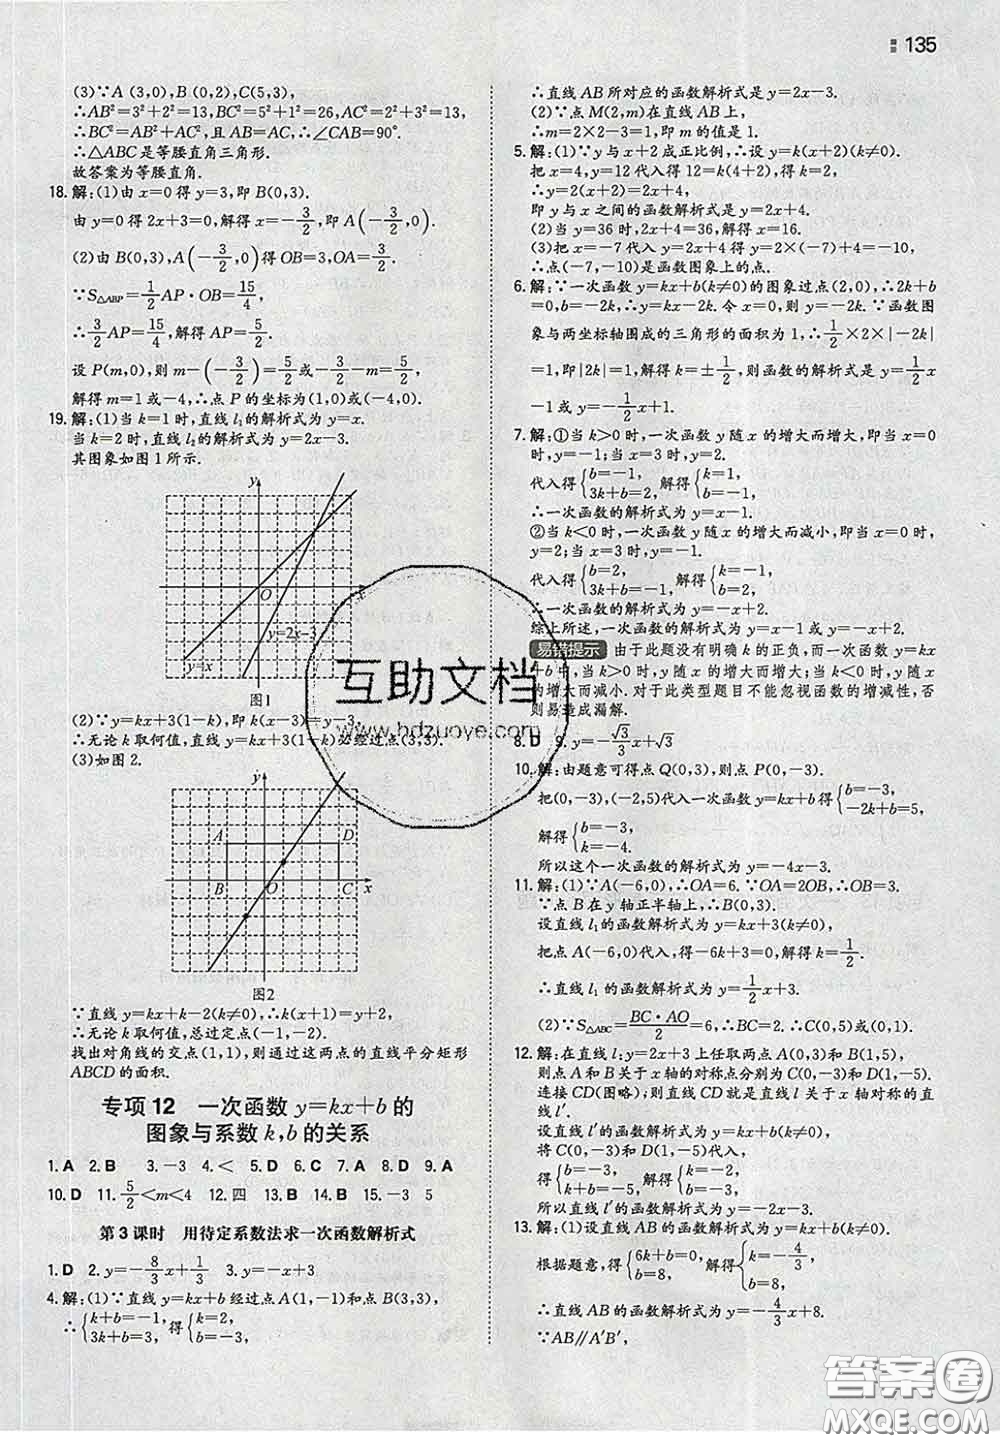 135
(3)∵A (3,0),B (0,2),C(5,3),
∴AB²=3²+2²=13,BC²=5²+1²=26,AC²=2²+3²=13,
∴BC²=AB²+AC²,且AB=AC,∴∠CAB=90°.
∴△ABC是等腰直角三角形.
故答案为等腰直角.
18.解:(1)由 x=0得 y=3,即B(0,3).
由 y=0得 2x+3=0,解得 x=-3/2,即 A(-3/2,0).
(2)由 B(0,3),A(-3/2,0)得OB=3,OA=3/2.
∵S△ABP=1/2 AP·OB=15/4,
∴3/2 AP=15/4,解得 AP=5/2.
设 P(m,0),则 m-(-3/2)=5/2或-3/2-m=5/2,
解得 m=1或-4,∴点 P 的坐标为(1,0)或(-4,0).
19.解:(1)当 k=1时,直线 l₁的解析式为 y=x.
当 k=2时,直线 l₂的解析式为 y=2x-3.
其图象如图1所示.
y
O
x
y=2x-3
y=x
图1
(2)∵y=kx+3(1-k),即 k(x-3)=y-3,
∴无论 k 取何值,直线 y=kx+3(1-k)必经过点(3,3).
(3)如图 2.
y
A
D
B
O
C
x
图2
∵直线 y=kx+k-2(k≠0),∴k(x+1)=y+2,
∴无论 k 取何值,总过定点(-1,-2).
找出对角线的交点(1,1),则通过这两点的直线平分矩形
ABCD 的面积.
专项12 一次函数 y=kx+b 的
图象与系数 k,b 的关系
1.A 2.B 3.-3 4.< 5.D 6.C 7.A 8.D 9.A
10.D 11.5/2<m<4 12.四 13.B 14.B 15.-3 5
第3课时 用待定系数法求一次函数解析式
1.D 2.y=-8/3 x+1/3 3.y=-x+3
4.解:(1)∵直线 y=kx+b 经过点 A(1,-1)和点 B(3,3),
∴{k+b=-1, 3k+b=3, 得{k=2, b=-3,
∴直线 AB 所对应的函数解析式是 y=2x-3.
(2)∵点 M(2,m)在直线 AB 上,
∴m=2×2-3=1,即 m 的值是 1.
5.解:(1)∵y 与 x+2 成正比例,∴设 y=k(x+2)(k≠0).
把 x=4,y=12 代入得 12=k(4+2),得 k=2,
∴y=2(x+2)=2x+4,
即 y 与 x 之间的函数解析式是 y=2x+4.
(2)当 y=36 时,2x+4=36,解得 x=16.
(3)把 x=-7 代入 y=2x+4 得 y=2×(-7)+4=-10,
∴点(-7,-10)是函数图象上的点.
6.解:∵一次函数 y=kx+b(k≠0)的图象过点(2,0),∴2k+b
=0,b=-2k,∴y=kx-2k. 令 x=0,则 y=-2k. ∵函数图
象与两坐标轴围成的三角形的面积为 1,∴1/2×2×|-2k|
=1,即|2k|=1,解得 k=±1/2,则函数的解析式是 y=1/2 x
-1或 y=-1/2 x+1.
7.解:①当 k>0 时,一次函数 y 随 x 的增大而增大,即当 x=0
时,y=-1;当 x=3 时,y=2.
代入得{b=-1, 3k+b=2, 解得{k=1, b=-1,
∴一次函数的解析式为 y=x-1.
②当 k<0 时,一次函数 y 随 x 的增大而减小,即当 x=0 时,
y=2;当 x=3 时,y=-1.
代入得{b=2, 3k+b=-1, 解得{k=-1, b=2,
∴一次函数的解析式为 y=-x+2.
综上所述,一次函数的解析式为 y=x-1 或 y=-x+2.
易错提示 由于此题没有明确 k 的正负,而一次函数 y=kx
+b 中,当 k>0 时,y 随 x 的增大而增大;当 k<0 时,y 随 x
的增大而减小. 对于此类型题目不能忽视函数的增减性,否
则易造成漏解.
8.D 9.y=-√3/3 x+√3
10.解:由题意可得点 Q(0,3),则点 P(0,-3).
把(0,-3),(-2,5)代入一次函数 y=kx+b得{b=-3, -2k+b=5,
解得{b=-3, k=-4.
所以这个一次函数的解析式为 y=-4x-3.
11.解:(1)∵A(-6,0),∴OA=6. ∵OA=2OB,∴OB=3.
∵点 B 在 y 轴正半轴上,∴B(0,3).
设直线 l₁的函数解析式为 y=kx+3(k≠0),
把点 A(-6,0)代入,得-6k+3=0,解得 k=1/2.
∴直线 l₁的函数解析式为 y=1/2 x+3.
(2)∵S△ABC=BC·AO/2=6,∴BC=2. ∴C(0,5)或(0,1).
12.解:在直线 l:y=2x+3 上任取两点 A(0,3)和 B(1,5),
则点 A 和点 B 关于 x 轴的对称点分别为 C(0,-3)和 D(1,-5).
连接 CD(图略),则直线 CD 就是直线 l 关于 x 轴对称的直
线 l′.
设直线 l′的函数解析式为 y=kx+b(k≠0),
将 C(0,-3)和 D(1,-5)代入,
得{b=-3, k+b=-5, 解得{k=-2, b=-3,
所以直线 l′的函数解析式为 y=-2x-3.
13.解:(1)设直线 AB 的函数解析式为 y=kx+b(k≠0),
根据题意,得{6k+b=0, b=8, 解得{k=-4/3, b=8,
∴直线 AB 的函数解析式为 y=-4/3 x+8.
∵AB∥A′B′,
互助文档
www.hdzuoye.com
答案圈
MXQE.COM